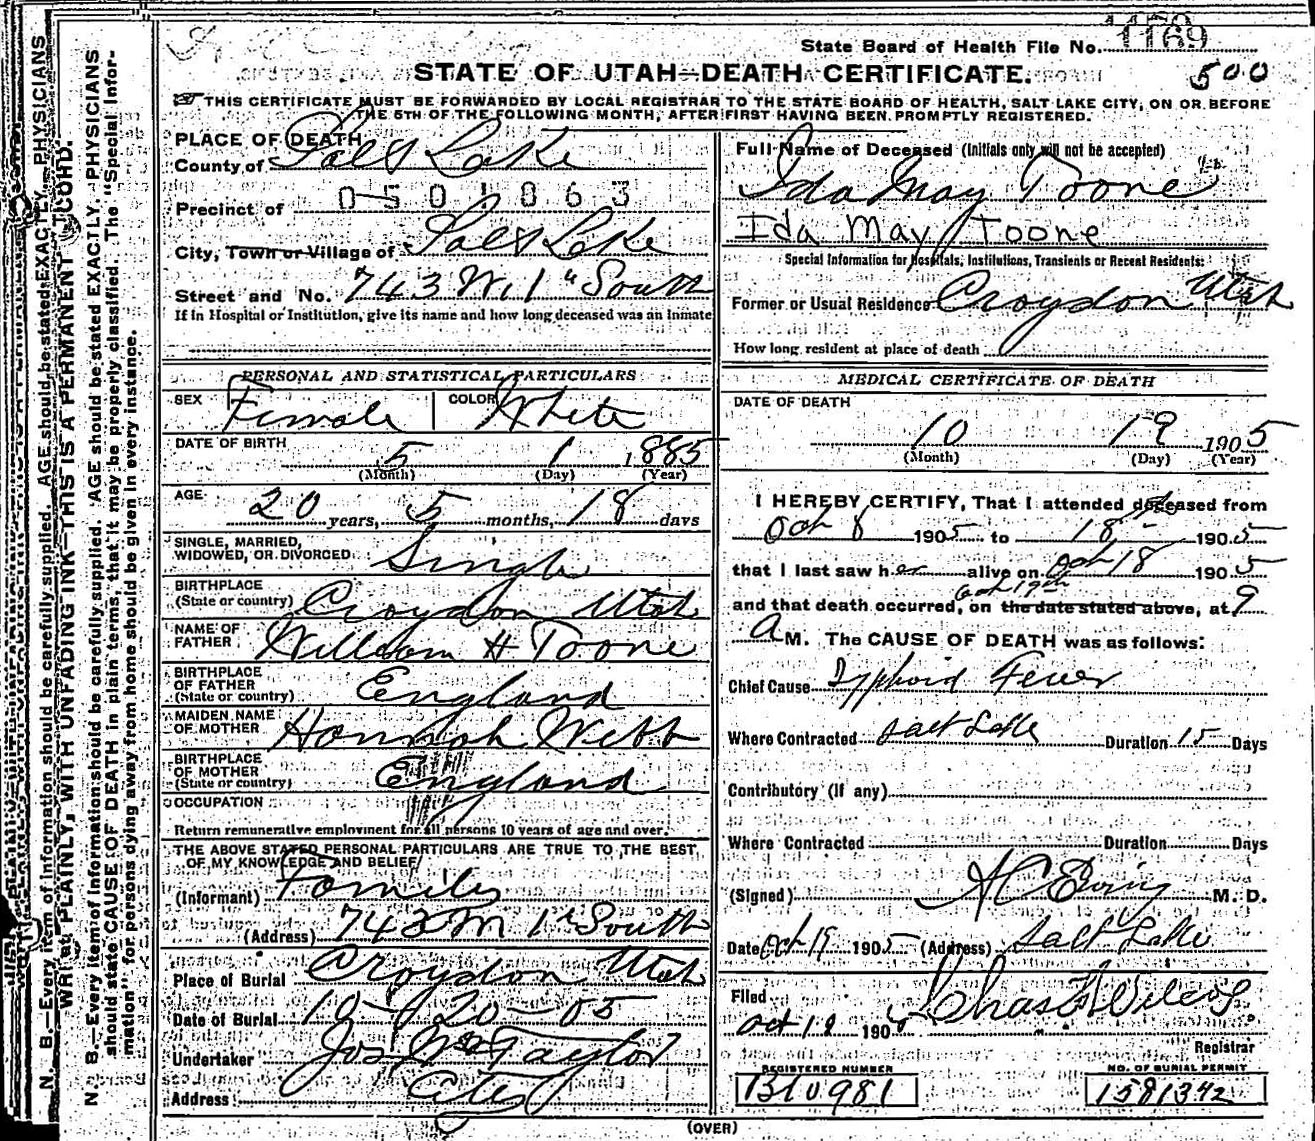 State Board of Health File No. 1169
500
STATE OF UTAH—DEATH CERTIFICATE.
THIS CERTIFICATE MUST BE FORWARDED BY LOCAL REGISTRAR TO THE STATE BOARD OF HEALTH, SALT LAKE CITY, ON OR BEFORE
THE 5TH OF THE FOLLOWING MONTH, AFTER FIRST HAVING BEEN PROMPTLY REGISTERED.
PLACE OF DEATH
County of Salt Lake
Precinct of 0501063
City, Town or Village of Salt Lake
Street and No. 743 W. 1st South
If in Hospital or Institution, give its name and how long deceased was an inmate
PERSONAL AND STATISTICAL PARTICULARS
SEX Female COLOR White
DATE OF BIRTH
5 1 1885
(Month) (Day) (Year)
AGE
20 years, 5 months, 18 days
SINGLE, MARRIED,
WIDOWED, OR DIVORCED Single
BIRTHPLACE
(State or country) Croydon Utah
NAME OF
FATHER William H Toone
BIRTHPLACE
OF FATHER
(State or country) England
MAIDEN NAME
OF MOTHER Hannah Webb
BIRTHPLACE
OF MOTHER
(State or country) England
OCCUPATION
Return remunerative employment for all persons 10 years of age and over.
THE ABOVE STATED PERSONAL PARTICULARS ARE TRUE TO THE BEST
OF MY KNOWLEDGE AND BELIEF
(Informant) Family
(Address) 743 W 1st South
Place of Burial Croydon Utah
Date of Burial 10-20-05
Undertaker Jos Wm Taylor
Address: City
Full Name of Deceased (Initials only will not be accepted)
Ida May Toone
Ida May Toone
Special Information for Hospitals, Institutions, Transients or Recent Residents:
Former or Usual Residence Croydon Utah
How long resident at place of death
MEDICAL CERTIFICATE OF DEATH
DATE OF DEATH
10 19 1905
(Month) (Day) (Year)
I HEREBY CERTIFY, That I attended deceased from
Oct 8 1905 to Oct 18 1905
that I last saw her alive on Oct 18 1905
Oct 19th
and that death occurred, on the date stated above, at 9
A M. The CAUSE OF DEATH was as follows:
Chief Cause Typhoid Fever
Where Contracted Salt Lake Duration 15 Days
Contributory (if any)
Where Contracted Duration Days
(Signed) A C Ewing M. D.
Date Oct 19 1905 (Address) Salt Lake
Filed
Oct 19 190 Chas Wilcox
Registrar
REGISTERED NUMBER
B10981
NO. OF BURIAL PERMIT
(OVER)
N. B.—Every item of information should be carefully supplied. AGE should be stated EXACTLY. PHYSICIANS
WRITE PLAINLY, WITH UNFADING INK—THIS IS A PERMANENT RECORD.
N. B.—Every item of information should be carefully supplied. AGE should be stated EXACTLY. PHYSICIANS
should state CAUSE OF DEATH in plain terms, that it may be properly classified. The "Special Infor-
mation" for persons dying away from home should be given in every instance.